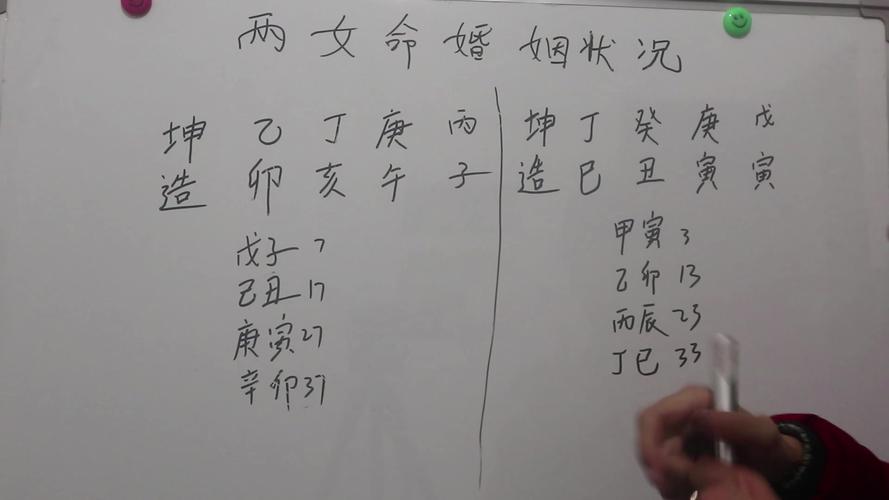 两女命婚姻状况
坤乙丁庚丙
造卯亥午子
戊子7
己丑17
庚寅27
辛卯37
坤丁癸庚戊
造巳丑寅寅
甲寅3
乙卯13
丙辰23
丁巳33